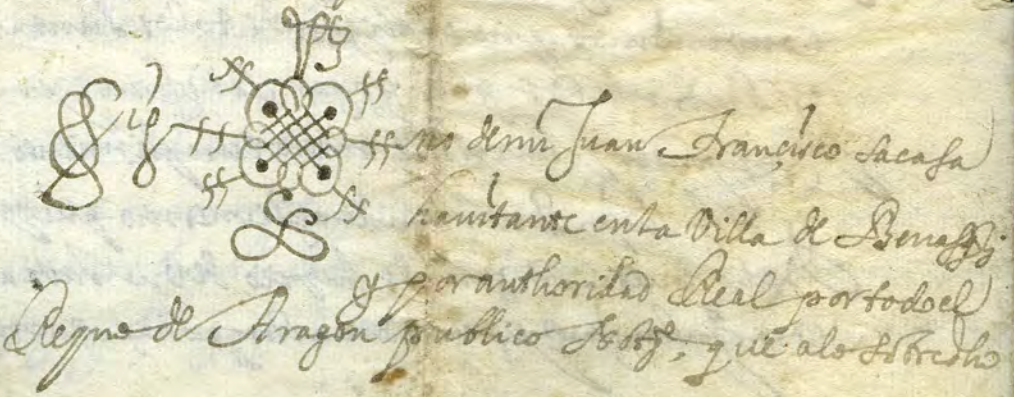 Sig no de mi Juan Françisco Sacasa
havitante en la Villa de Benasq;
y por authoridad Real por todo el
Reyno de Aragon publico Not.º, que a lo sobredho